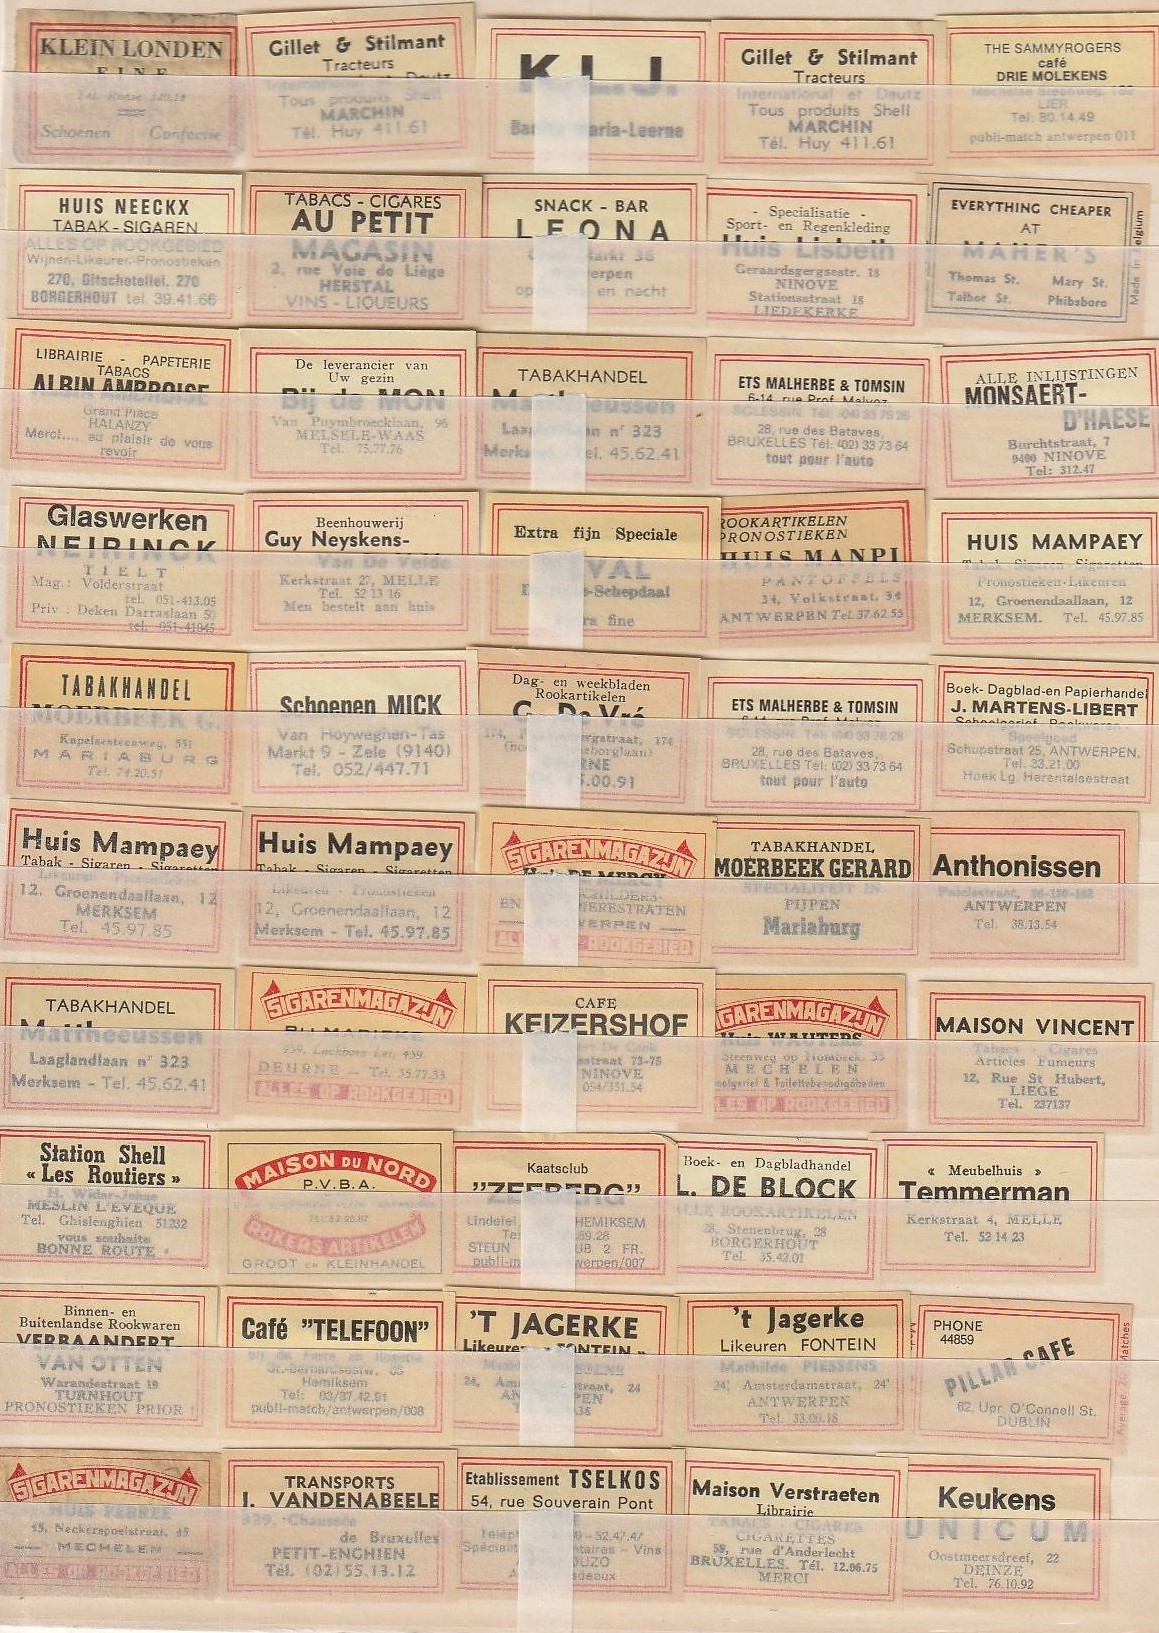 KLEIN LONDEN
FINE
Schoenen Confectie
Gillet & Stilmant
Tracteurs
International et Deutz
Tous produits Shell
MARCHIN
Tél. Huy 411.61
KLJ
Maria-Leerne
Gillet & Stilmant
Tracteurs
International et Deutz
Tous produits Shell
MARCHIN
Tél. Huy 411.61
THE SAMMYROGERS
café
DRIE MOLEKENS
Mechelse Steenweg,
LIER
Tel: 80.14.49
publi-match antwerpen 011
HUIS NEECKX
TABAK - SIGAREN
ALLES OP ROOKGEBIED
Wijnen-Likeuren-Pronostieken
270, Gitschotellei, 270
BORGERHOUT tel. 39.41.66
TABACS - CIGARES
AU PETIT
MAGASIN
2, rue Voie de Liège
HERSTAL
VINS - LIQUEURS
SNACK - BAR
LEONA
en nacht
- Specialisatie -
Sport- en Regenkleding
Huis Lisbeth
Geraardsgergsestr. 18
NINOVE
Stationsstraat 18
LIEDEKERKE
EVERYTHING CHEAPER
AT
MAHER'S
Thomas St. Mary St.
Talbot St. Phibsboro
Made in Belgium
LIBRAIRIE - PAPETERIE
TABACS
ALBIN AMBROISE
Grand Place
HALANZY
Merci.... au plaisir de vous
revoir
De leverancier van
Uw gezin
Bij de MON
Van Puymbroecklaan, 96
MELSELE-WAAS
Tel. 75.77.76
TABAKHANDEL
Mattheeussen
Laaglandlaan n° 323
Merksem - Tel. 45.62.41
ETS MALHERBE & TOMSIN
6-14, rue Prof. Malvoz
SCLESSIN. Tél: (04) 33 78 28
28, rue des Bataves,
BRUXELLES Tél: (02) 33 73 64
tout pour l'auto
ALLE INLIJSTINGEN
MONSAERT-
D'HAESE
Burchtstraat, 7
9400 NINOVE
Tel: 312.47
Glaswerken
NEIRINCK
TIELT
Mag.: Volderstraat
tel. 051-413.05
Priv : Deken Darraslaan 50
tel. 051-41045
Beenhouwerij
Guy Neyskens-
Van De Velde
Kerkstraat 27, MELLE
Tel. 52 13 16
Men bestelt aan huis
Extra fijn Speciale
VAL
Schepdaal
fine
ROOKARTIKELEN
PRONOSTIEKEN
HUIS MANPI
PANTOFFELS
34, Volkstraat, 34
ANTWERPEN Tel. 37.62 55
HUIS MAMPAEY
Tabak - Sigaren - Sigaretten
Pronostieken-Likeuren
12, Groenendaallaan, 12
MERKSEM. Tel. 45.97.85
TABAKHANDEL
MOERBEEK G.
Kapelsesteenweg, 551
MARIABURG
Tel. 74.20.51
Schoenen MICK
Van Hoyweghen-Tas
Markt 9 - Zele (9140)
Tel. 052/447.71
Dag- en weekbladen
Rookartikelen
G. De Vré
174
.00.91
ETS MALHERBE & TOMSIN
6-14, rue Prof. Malvoz
SCLESSIN. Tél: (04) 33 78 28
28, rue des Bataves,
BRUXELLES Tél: (02) 33 73 64
tout pour l'auto
Boek- Dagblad-en Papierhandel
J. MARTENS-LIBERT
Schoolgerief - Rookwaren
Speelgoed
Schupstraat 25, ANTWERPEN.
Tel. 33.21.00
Hoek Lg. Herentalsestraat
Huis Mampaey
Tabak - Sigaren - Sigaretten
Likeuren - Pronostieken
12, Groenendaallaan, 12
MERKSEM
Tel. 45.97.85
Huis Mampaey
Tabak - Sigaren - Sigaretten
Likeuren - Pronostieken
12, Groenendaallaan, 12
Merksem - Tel. 45.97.85
SIGARENMAGAZIJN
Huis DE MERCY
EN
ALLES OP ROOKGEBIED
TABAKHANDEL
MOERBEEK GERARD
SPECIALITEIT IN
PIJPEN
Mariaburg
Anthonissen
ANTWERPEN
Tel. 38.13.54
TABAKHANDEL
Mattheeussen
Laaglandlaan n° 323
Merksem - Tel. 45.62.41
SIGARENMAGAZIJN
BIJ MARIEKE
DEURNE - Tel. 35.77.33
ALLES OP ROOKGEBIED
CAFE
KEIZERSHOF
De Cock
straat 73-75
NINOVE
054/331.54
GARENMAGAZIJN
Huis WAUTERS
Steenweg op Hombeek, 35
MECHELEN
Toiletbenodigdheden
LLES OP ROOKGEBIED
MAISON VINCENT
Tabacs - Cigares
Articles Fumeurs
12, Rue St Hubert,
LIEGE
Tel. 237137
Station Shell
« Les Routiers »
MESLIN L'EVEQUE
Tel. Ghislenghien 51232
vous souhaite
BONNE ROUTE
MAISON DU NORD
P.V.B.A.
ROKERS ARTIKELEN
GROOT EN KLEINHANDEL
Kaatsclub
"ZEEBERG"
HEMIKSEM
STEUN UB 2 FR.
werpen/007
Boek- en Dagbladhandel
L. DE BLOCK
ALLE ROOKARTIKELEN
28, Stenenbrug, 28
BORGERHOUT
Tel. 35.42.01
« Meubelhuis »
Temmerman
Kerkstraat 4, MELLE
Tel. 52 14 23
Binnen- en
Buitenlandse Rookwaren
VERBAANDERT
VAN OTTEN
Warandestraat 19
TURNHOUT
PRONOSTIEKEN PRIOR
Café "TELEFOON"
Hemiksem
Tel: 03/87.42.91
publi-match/antwerpen/008
'T JAGERKE
Likeuren « FONTEIN »
24, Am straat, 24
't Jagerke
Likeuren FONTEIN
Mathilde PIESSENS
24, Amsterdamstraat, 24
ANTWERPEN
Tel. 33.00.18
PHONE
44859
PILLAR CAFE
62, Upr. O'Connell St.
DUBLIN
Average Matches
SIGARENMAGAZIJN
HUIS FERREE
45, Neckerspoelstraat, 45
MECHELEN
ALLES OP ROOKGEBIED
TRANSPORTS
J. VANDENABEELE
329, Chaussée
de Bruxelles
PETIT-ENGHIEN
Tél. (02) 55.13.12
Etablissement TSELKOS
54, rue Souverain Pont
52.47.47
Vins
OUZO
Maison Verstraeten
Librairie
TABACS CIGARES
CIGARETTES
59, rue d'Anderlecht
BRUXELLES. Tél. 12.06.75
MERCI
Keukens
UNICUM
Oostmeersdreef, 22
DEINZE
Tel. 76.10.92